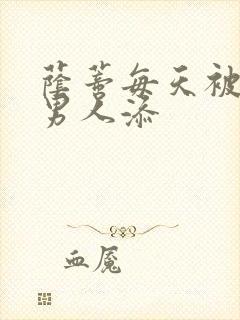 蔭蒂每天被
男人添
血魇